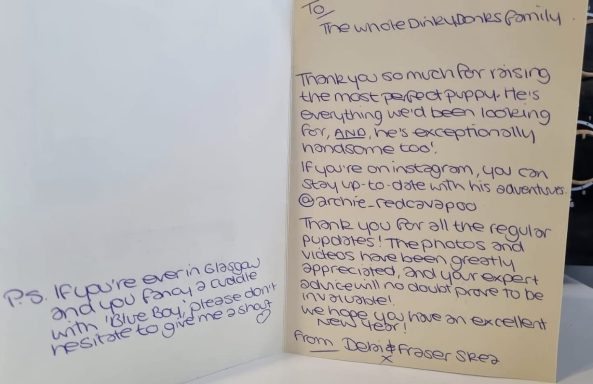 To
The whole DinkyDonks family.
Thank you so much for raising
the most perfect puppy. He's
everything we'd been looking
for, AND, he's exceptionally
handsome too!
If you're on instagram, you can
stay up-to-date with his adventures.
@archie_redcavapoo
Thank you for all the regular
pupdates! The photos and
videos have been greatly
appreciated, and your expert
advice will no doubt prove to be
invaluable!
We hope you have an excellent
New Year!
From Debi & Fraser
x
P.S. If you're ever in Glasgow
and you fancy a cuddle
with 'Blue Boy', please don't
hesitate to give me a shout